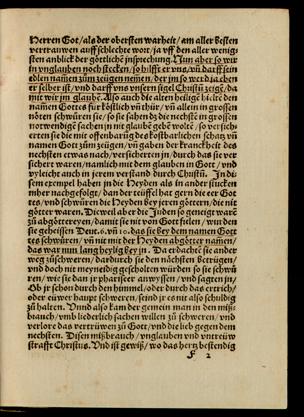 Herren Got/als der obersten warheit/am aller besten
vertrauwen auff schlechte wort/ja vff den aller wenig-
sten anblick der götlichē jnsprechung. Nun aber so wir
jn vnglauben noch stecken/so hilfft er vns/vñ darff sein
edlen namē zům zeugen nemē/der jm so werd ja chen
er selber ist/vnd darff vns vnsern sigel Christū zeigē/da
mit wir jm glaubē. Also auch die alten heilige hielte den
namen Gottes für köstlich vñ thür/vñ allein in grossen
nöten schwüren sie/so sie sahen dz die nechste in grossen
notwendigē sachen jn nit glaubē gebē woltē/so versich-
erten sie die mit offenbarung des kostbarlichen schatz vñ
namen Gott zům zeugen/vñ gaben der kranckheit des
nechsten etwas nach/versicherten jn/durch das sie vor
sicherr waren/namlich mit dem glauben in Gott/vnd
vyleicht auch in jrem verstand durch Christū. In di-
sem exempel haben jn die Heyden als in ander stucken
mher nachgefolgt/dan der teüffel hat gern die eer Got
tes/vnd schwüren die Heyden bey jeren göttern/die nit
götter waren. Dieweil aber die Juden so geneigt warē
zů abgöttereyen/damit sie nit von Gott fielen/wurden
sie geheissen Deut. 6. vñ 10. das sie bey dem namen Gott
tes schwüren/vñ nit mit der Heyden abgötter namen/
das war nun lang heylig bey jn. Da erdacht sie ander
weg zů schweren/dardurch sie den nächsten betrügen/
vnd doch nit meyneidig gescholten würden so sie schwü
ren/wie sie dan je phariseer anwyssen/vnd sagten jnen
Ob jr schon durch den himmel/oder durch das erreich/
oder eüwer haupt schweren/seind jr es nit also schuldig
zů halten. Vnnd also kam der gemein man in den miß-
brauch/vmb liederlich sachen willen zů schweren/vnd
verlore das vertrüwen zů Gott/vnd die lieb gegen dem
nechsten. Disen mißbrauch/vnglauben vnd vntreüw
strafft Christus. Vnd ist gewiß/wo das hertz bestendig
F 2